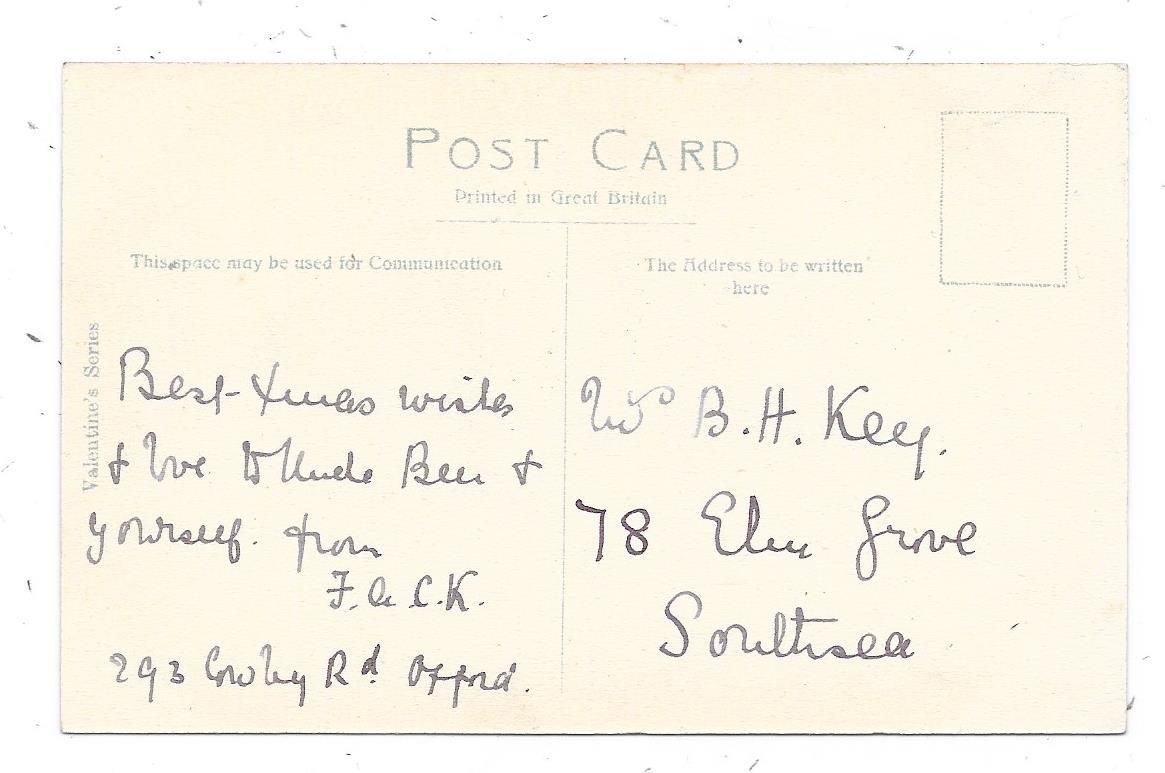 POST CARD
Printed in Great Britain
This space may be used for Communication
The Address to be written
here
Valentine's Series
Best Xmas wishes
& love to Uncle Ben &
yourself. from
F. & C.K.
293 Cowley Rd. Oxford.
Mrs B.H. Key.
78 Elm Grove
Southsea